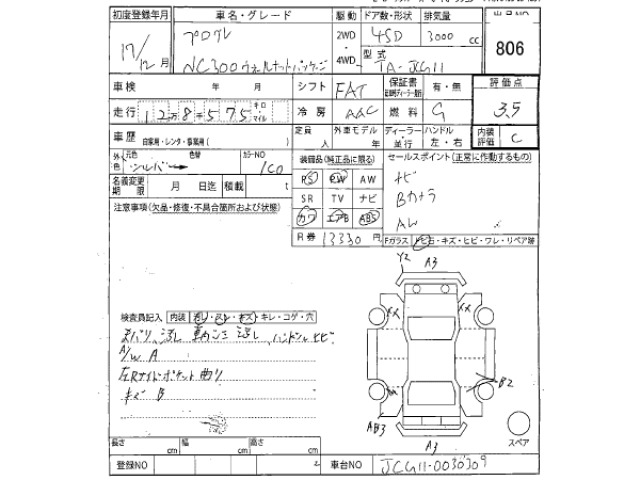 初度登録年月 車名・グレード 駆動 ドア数・形状 排気量 出品NO
17/12月 プログレ 2WD ・ 4WD 4SD 3000 cc 806
NC300ウォルナットパッケージ 型式 TA-JCG11
車検 年 月 シフト FAT 保証書 有・無 評価点
走行 12万8千575 キロ マイル 冷房 AAC 燃料 G 3.5
車歴 自家用・レンタ・事業用( ) 定員 人 外車モデル 年 ディーラー・並行 ハンドル 左・右 内装評価 C
外色 元色 シルバー 色替 カラーNO 1C0 装備品(純正品に限る) セールスポイント(正常に作動するもの)
名義変更期限 月 日迄 積載 t PS PW AW ナビ
SR TV ナビ Bカメラ
注意事項(欠品・修復・不具合箇所および状態) カワ エアB ABS AW
R券 13330 円 Fガラス トビ石・キズ・ヒビ・ワレ・リペア跡
Y2 A3
検査員記入 内装 ヨゴレ・スレ・キズ・キレ・コゲ・穴
ハンドルヒビ
A/W A
左Rサイドポケット曲り
キズ B
B2
AB3 A3
スペア
長さ cm 幅 cm 高さ cm
登録NO 車台NO JCG11-0030309